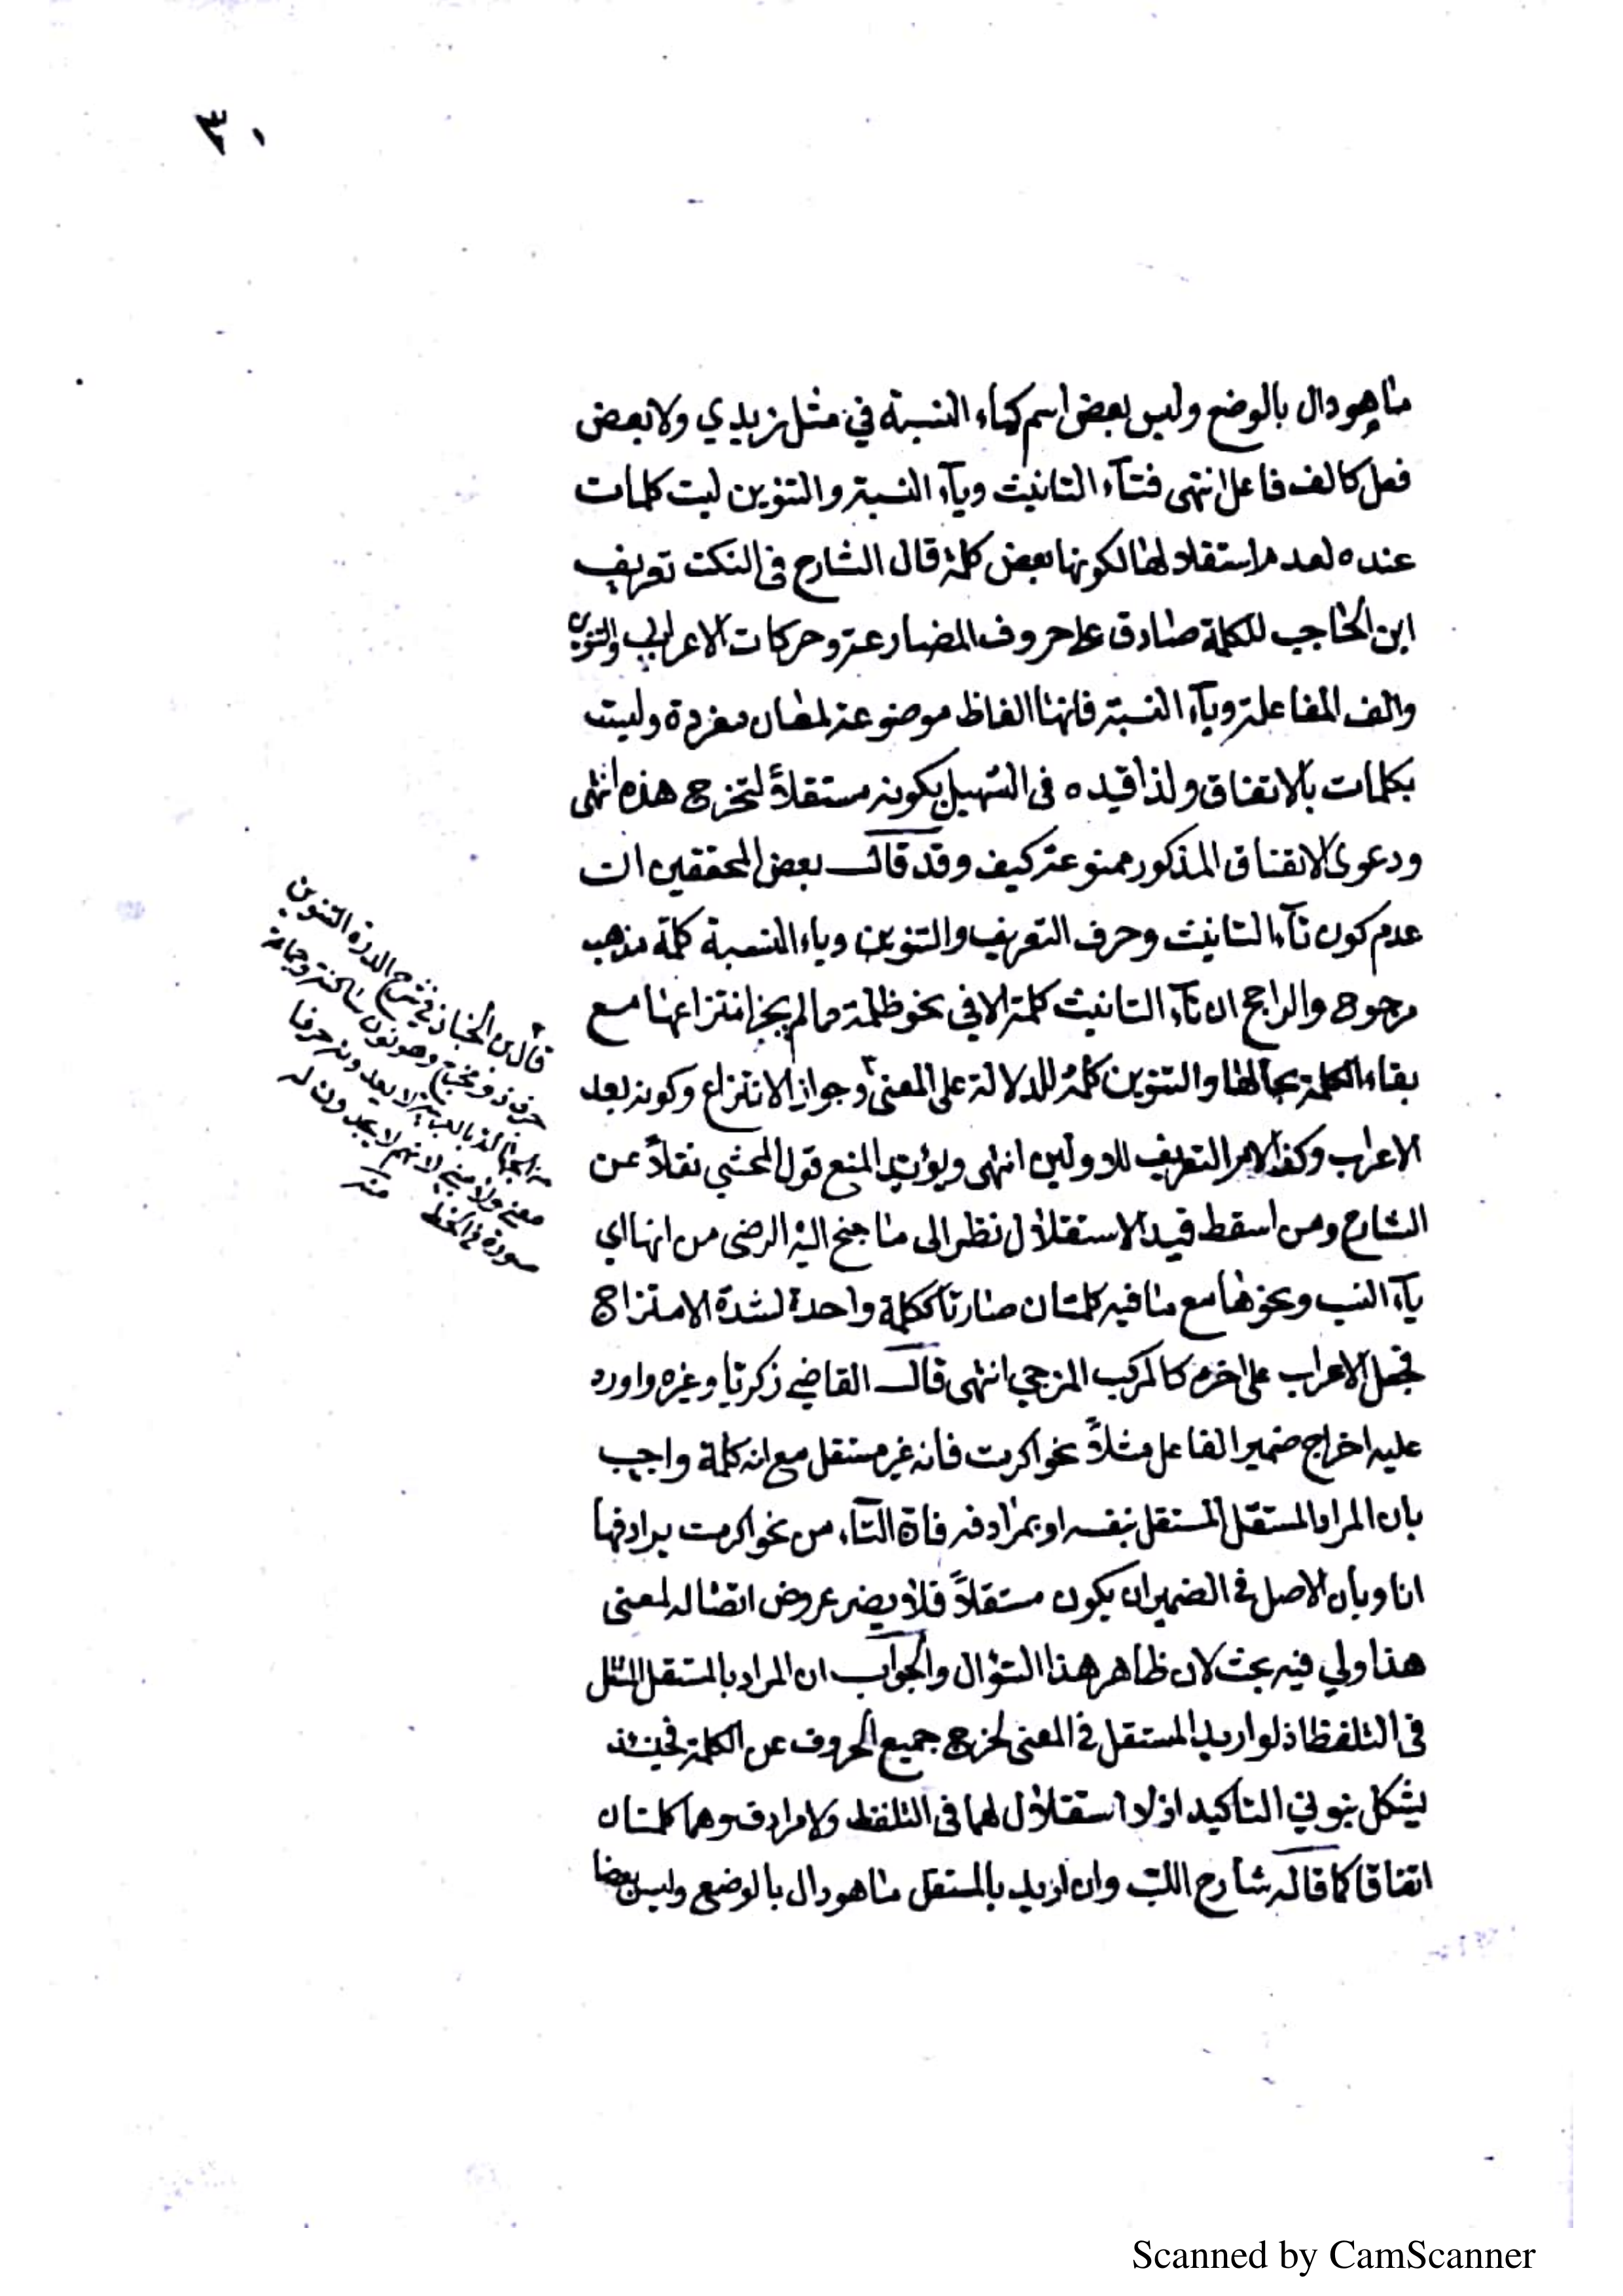 ٣٠
ما هو دال بالوضع وليس بعض اسم كياء النسبة في مثل زيدي ولا بعض
فعل كالف فاعل انتهى فتآء التانيث ويآء النسبة والتنوين ليت كلمات
عنده لعدم استقلالها لكونها بعض كلمة قال الشارح في النكت تعريف
ابن الحاجب للكلمة صادق على حروف المضارعة وحركات الاعراب والتنوين
والف المفاعلة ويآء النسبة فانها الفاظ موضوعة لمعان مفردة وليست
بكلمات بالاتفاق ولذا قيده في التسهيل بكونه مستقلاً لتخرج هذه انتهى
ودعوى الاتفاق المذكور ممنوعة كيف وقد قال بعض المحققين ان
عدم كون تآء التانيث وحرف التعريف والتنوين وياء النسبة كلمة مذهب
مرجوح والراجح ان تآء التانيث كلمة الا في نحو ظلمة مما لم يجز انتزاعها مع
بقاء الكلمة بحالها والتنوين كلمة للدلالة على المعنى وجواز الانتزاع وكونه بعد
الاعراب وكذا لام التعريف للاولين انتهى ويؤيد المنع قول المحشي نقلاً عن
الشارح ومن اسقط قيد الاستقلال نظر الى ما جنح اليه الرضى من انها اي
يآء النسب ونحوها مع ما فيه كلمتان صارتا ككلمة واحدة لشدة الامتزاج
فجعل الاعراب على اخره كالمركب المزجي انتهى قال القاضي زكريا وغيره واورد
عليه اخراج ضمير الفاعل مثلاً نحو اكرمت فانه غير مستقل مع انه كلمة واجيب
بان المراد المستقل المستقل بنفسه او بمرادفه فان التاء من نحو اكرمت يرادفها
انا وبان الاصل في الضمير ان يكون مستقلاً فلا يضر عروض اتصاله لمعنى
هذا ولي فيه بحث لان ظاهر هذا السؤال والجواب ان المراد بالمستقل المستقل
في التلفظ اذ لو اريد المستقل في المعنى لخرج جميع الحروف عن الكلمة فحينئذ
يشكل بنوني التاكيد اذ لا استقلال لهما في التلفظ ولا مرادف وهما كلمتان
اتفاقا كما قاله شارح اللب وان اريد بالمستقل ما هو دال بالوضع وليس بعضا
قال بن الخباز في شرح الدرة التنوين
حرف ذو مخرج وهو نون ساكنة وجماعة
الا يعدونه حرفا
معنى ولا مبنى لانهم لا يجدون له
صورة في الخط منه
Scanned by CamScanner